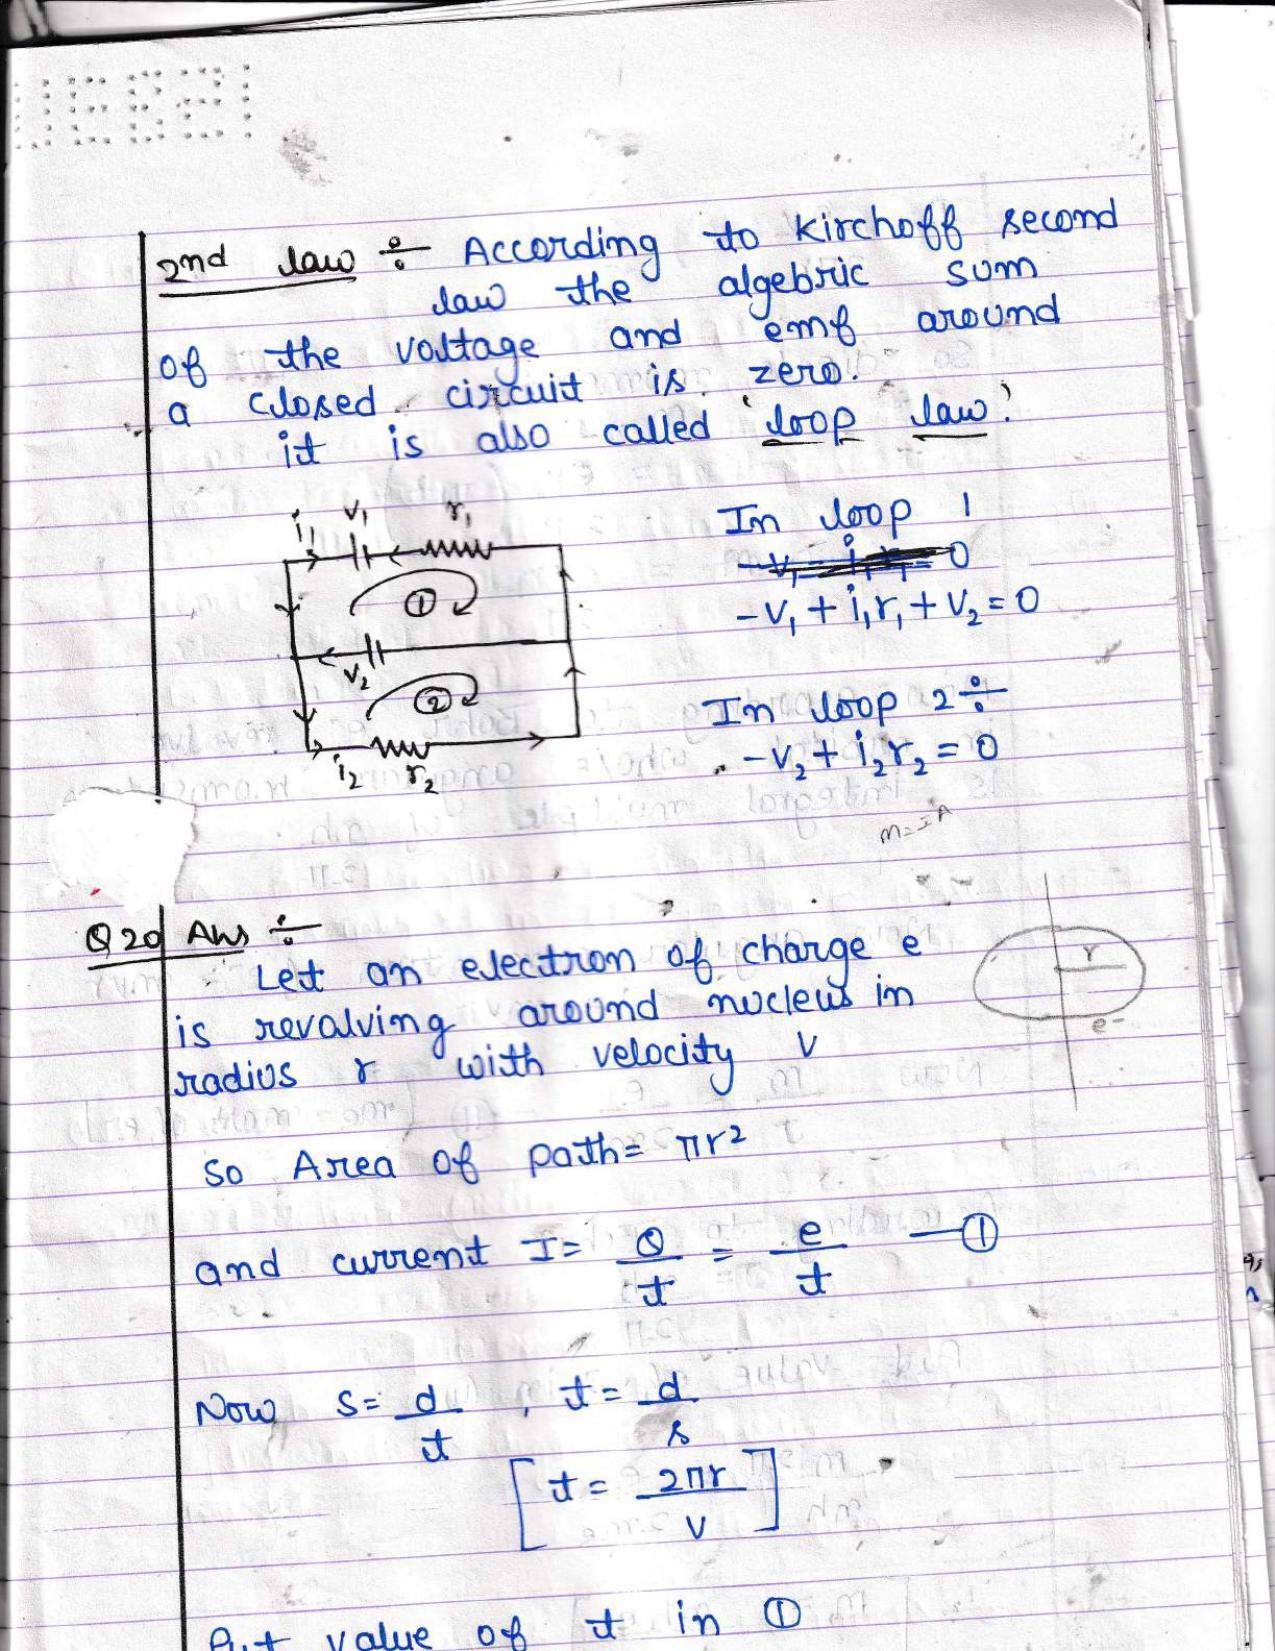 2nd law ÷ According to Kirchoff second
law the algebric sum
of the voltage and emf around
a closed circuit is zero.
it is also called 'loop law'
i₁ V₁ r₁
①
V₂
②
i₂ r₂
In loop 1
-V₁ + i₁r₁ + V₂ = 0
In loop 2 ÷
-V₂ + i₂r₂ = 0
m=IA
Q 20 Ans ÷
Let an electron of charge e
is revalving around nucleus in
radius r with velocity v
r
e-
so Area of path = πr²
and current I = Q/t = e/t —①
Now s = d/t , t = d/s
[t = 2πr/v]
Put value of t in ①